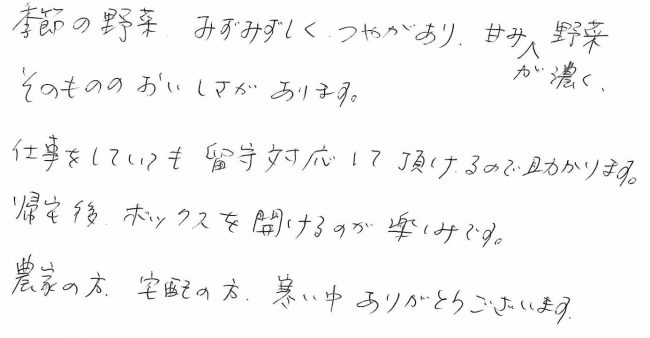 季節の野菜、みずみずしく、つやがあり、甘みが濃く、野菜
そのもののおいしさがあります。
仕事をしていても留守対応して頂けるので助かります。
帰宅後、ボックスを開けるのが楽しみです。
農家の方、宅配の方、寒い中ありがとうございます。